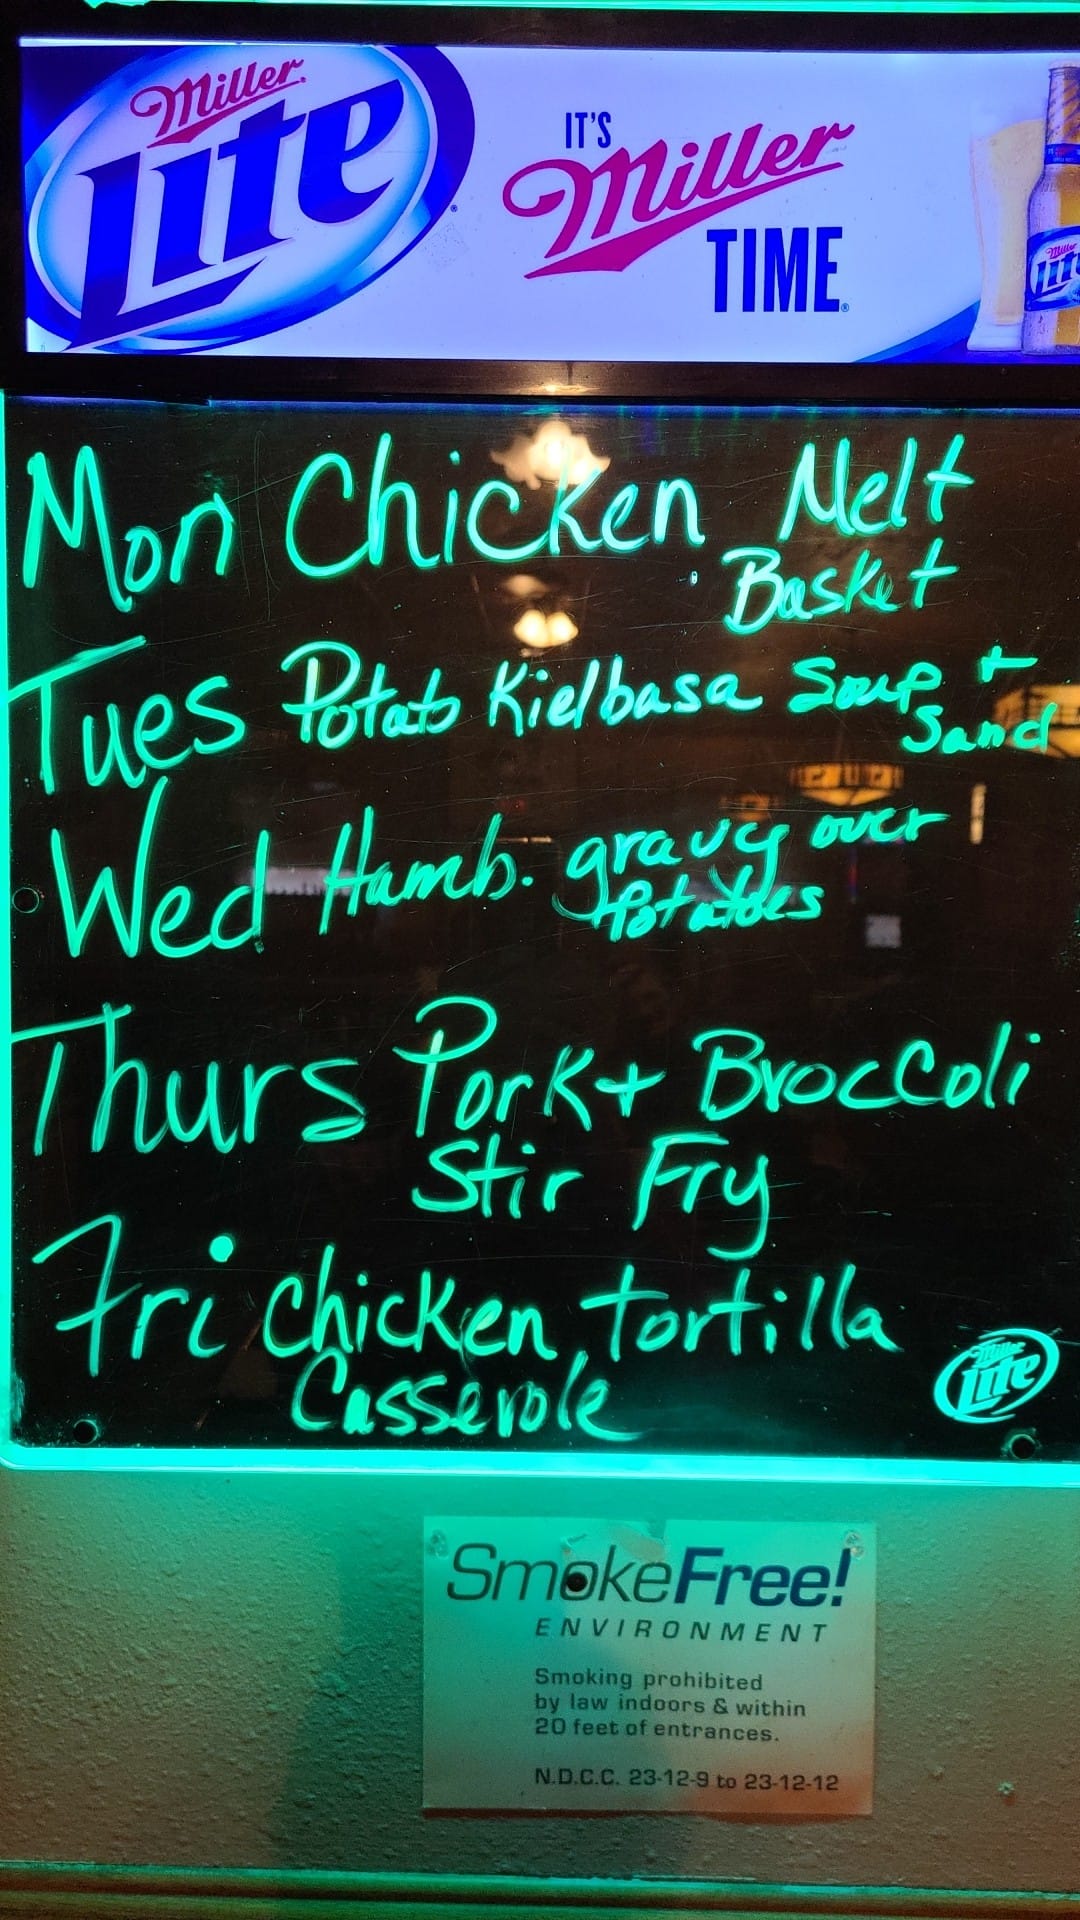 Miller
Lite
IT'S
Miller
TIME
Miller
Lite
Mon Chicken Melt
Basket
Tues Potato Kielbasa Soup +
Sand
Wed Hamb. gravy over
Potatoes
Thurs Pork + Broccoli
Stir Fry
Fri Chicken tortilla
Casserole
Miller
Lite
SmokeFree!
ENVIRONMENT
Smoking prohibited
by law indoors & within
20 feet of entrances.
N.D.C.C. 23-12-9 to 23-12-12